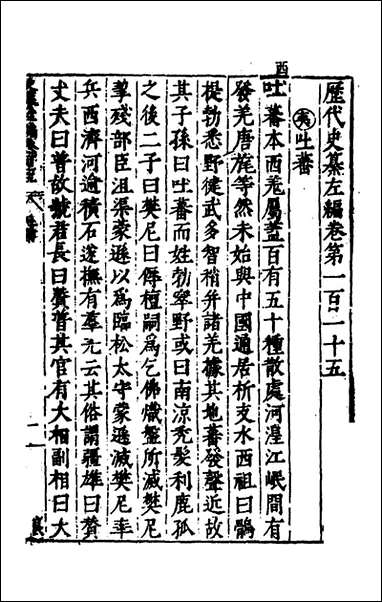 歷代史纂左編卷第一百二十五
夷
吐蕃
酉
吐蕃本西羌屬蓋百有五十種散處河湟江岷間有
發羌唐旄等然未始與中國通居析支水西祖曰鶻
提勃悉野徤武多智稍并諸羌據其地蕃發聲近故
其子孫曰吐蕃而姓勃窣野或曰南涼禿髮利鹿孤
之後二子曰樊尼曰傉檀嗣爲乞佛熾盤所滅樊尼
挈殘部臣沮渠蒙遜以爲臨松太守蒙遜滅樊尼率
兵西濟河逾積石遂撫有羣羌云其俗謂彊雄曰贊
丈夫曰普故號君長曰贊普其官有大相副相曰大